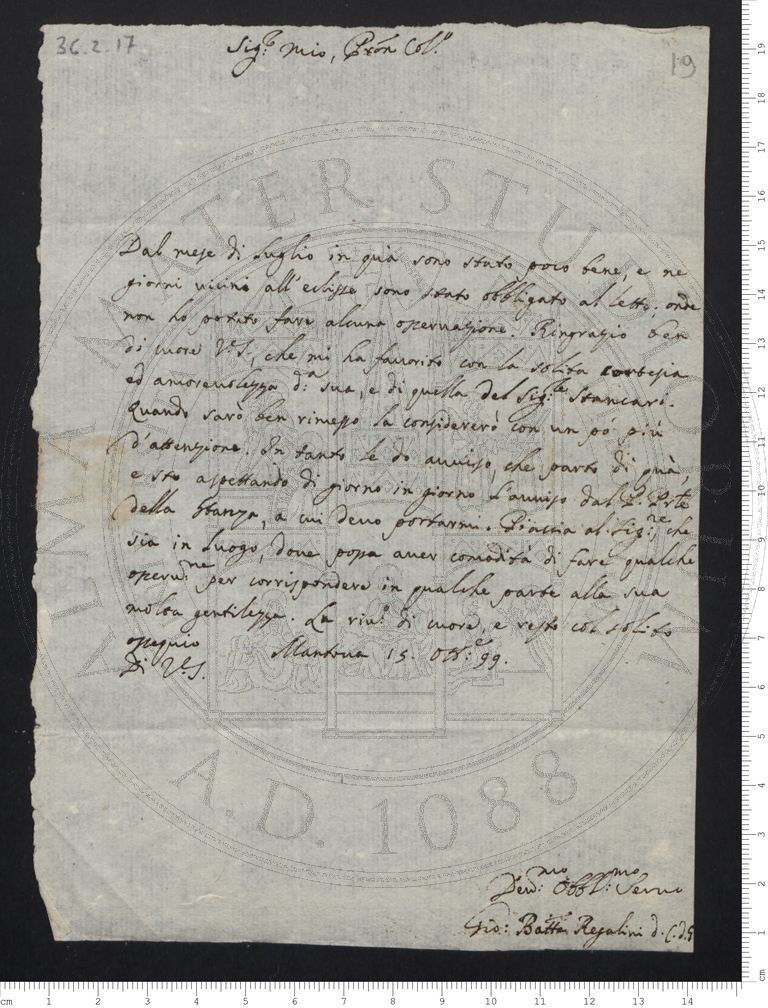 36.2.17
19
Sig.re mio, Pron Col.o
Dal mese di Luglio in quà sono stato poco bene, e ne
giorni vicini all'eclisse sono stato obbligato al letto: onde
non ho potuto fare alcuna osservazione. Ringrazio ben
di cuore V.S., che mi ha favorito con la solita cortesia
ed amorevolezza d.a sua, e di quella del Sig.re Stancari.
Quando sarò ben rimesso la considererò con un pò più
d'attenzione. In tanto le do avviso, che parto di quà,
e sto aspettando di giorno in giorno l'avviso dal P. Prle
della Stanza, a cui devo portarmi. Piaccia al Sig.re che
sia in luogo, dove possa aver comodità di fare qualche
osserv.ne per corrispondere in qualche parte alla sua
molta gentilezza. La riv.o di cuore, e resto col solito
ossequio
Di V.S. Mantova 15. Ott.e 99.
Dev.mo Obbl.mo Servo
Gio: Batta Regalini d. C. d. G
ALMA MATER STUDIORUM
A.D. 1088
cm 1 2 3 4 5 6 7 8 9 10 11 12 13 14
19
18
17
16
15
14
13
12
11
10
9
8
7
6
5
4
3
2
1
cm